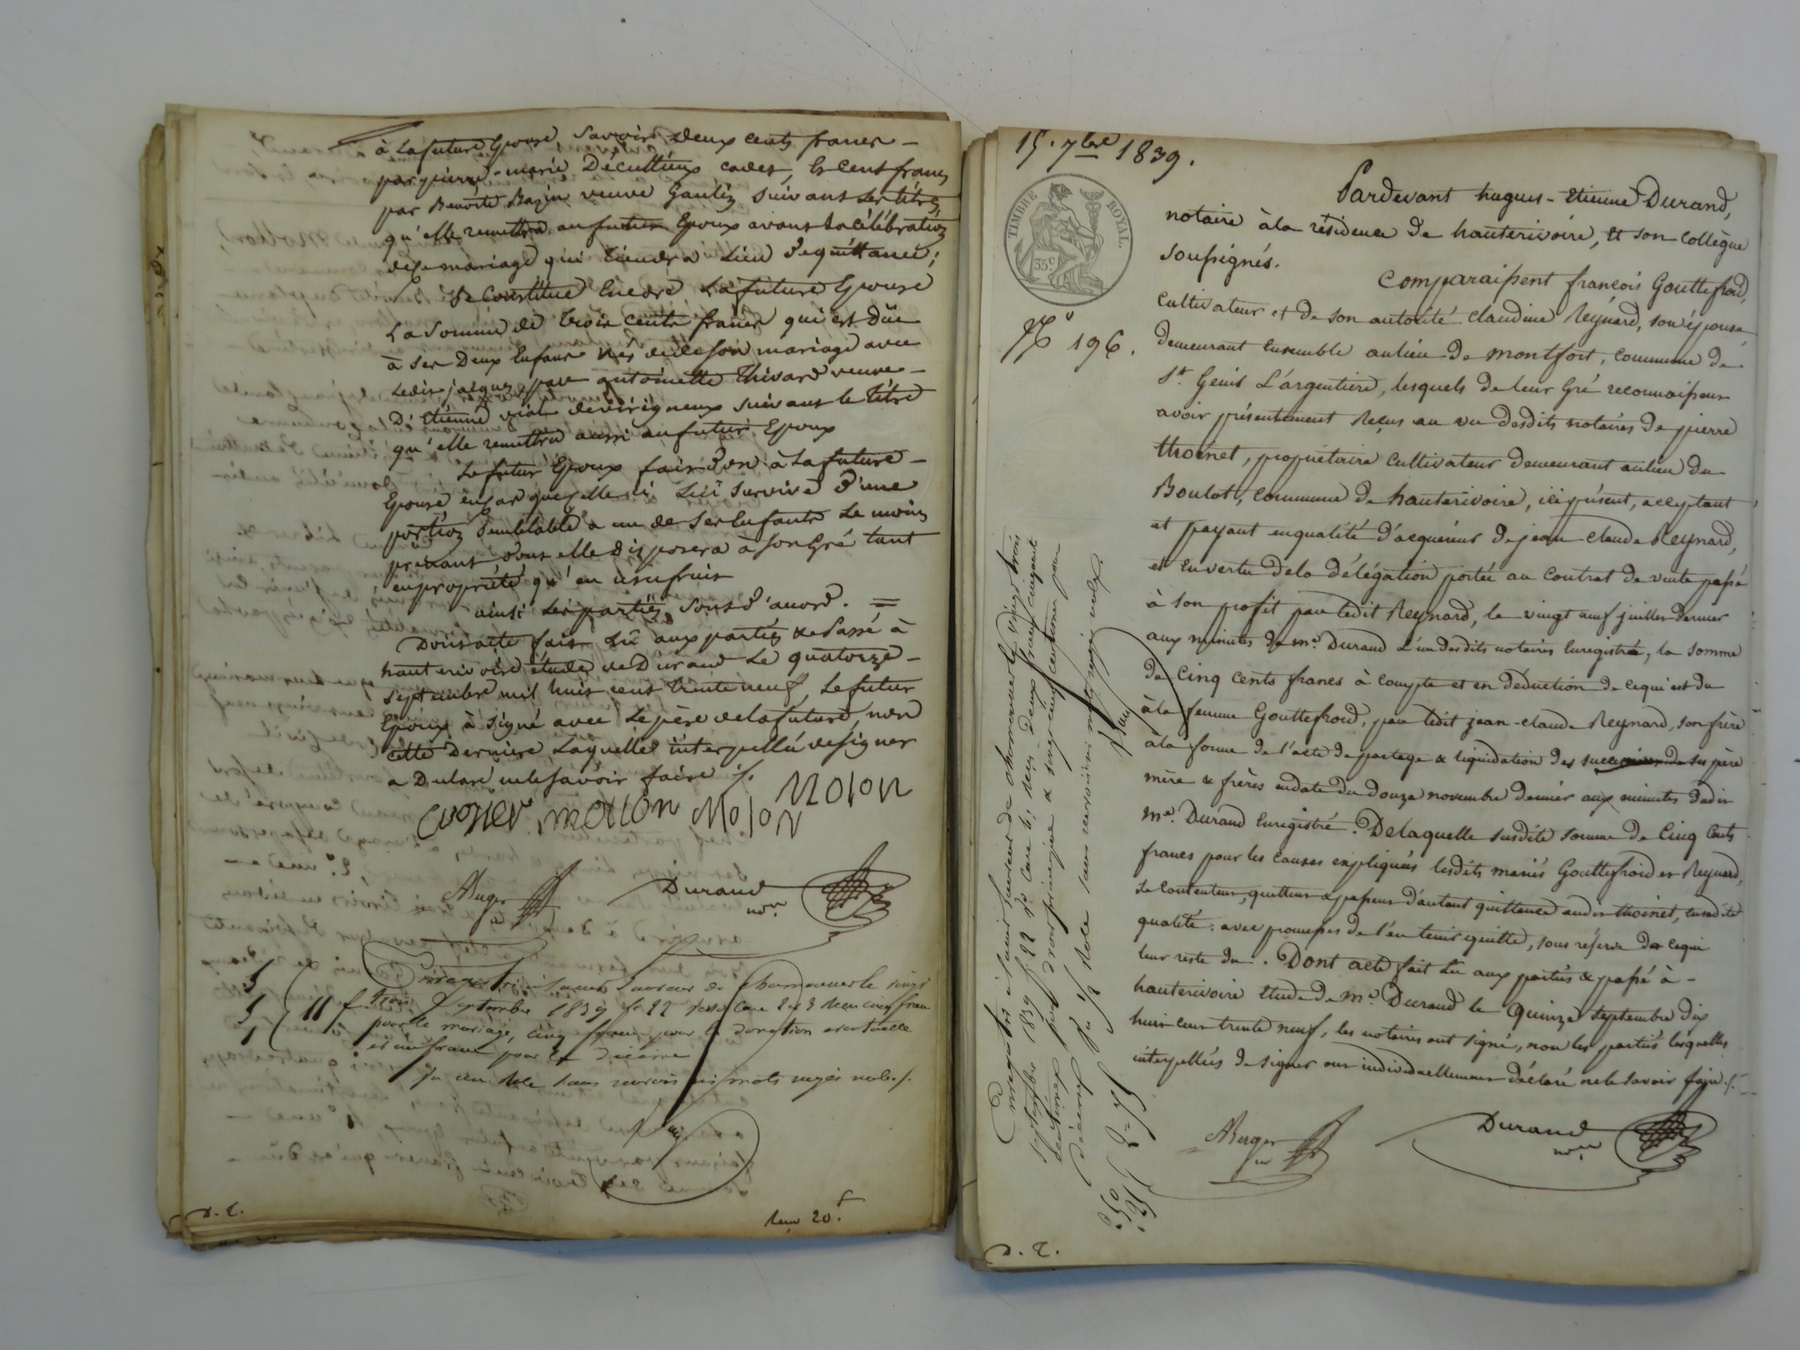 à la future Epouse, Savoir Deux cents francs -
par pierre-marie Décultieux cadet, & Cent francs
par Benoite Bazin veuve Gaulez Suivant Ses titres,
qu'elle remettra au futur Epoux avant la célébration
de ce mariage qui tiendra lieu de quittance;
Se Constitue Encore La future Epouse
La Somme de trois cents francs qui est Düe
à Ses Deux Enfans Nés de Son mariage avec
Ledit jacques par antoinette thivard veuve -
D'Etienne vial de virigneux Suivant le titre
qu'elle remettra aussi au futur Epoux
Le futur Epoux fait Don à La future -
Epouse en Cas qu'elle Lui Survive D'une
portion Semblable à un de Ses Enfants Le moins
prenant Dont elle Disposera à Son Gré tant
en propriété qu'en usufruit
ainsi Les parties Sont D'accord. =
Dont acte fait Lû aux parties & Passé à
hauterivoire étude de Durand Le quatorze -
Septembre mil huit cent trente neuf, Le futur
Epoux à Signé avec Le père de la future, non
cette Dernière Laquelle interpellée de signer
a Déclaré ne le Savoir faire ./.
molion Molon Molon
Auger Durand
nore
5
5
1
11 f
Enregistré à Saint Laurent de Chamousset le vingt
trois Septembre 1839 f° 22 Reçu cinq francs
pour le mariage, cinq francs pour la donation éventuelle
et un franc pour le décime
Vu un Role Sans renvois mots rayés nuls ./.
D. E.
Reçu 20 f
15. 7bre 1839.
TIMBRE ROYAL
35c
N° 196.
Pardevant hugues-Etienne Durand,
notaire à la résidence de hauterivoire, Et son Collègue
soussignés.
Comparaissent françois Gouttefroid,
Cultivateur et de son autorité Claudine Reynard, son épouse
demeurant Ensemble au lieu de montfort, commune de
St. Genis L'argentiere, lesquels de leur Gré reconnaissent
avoir présentement Reçus au vu desdits notaires de pierre
thoinet, propriétaire Cultivateur demeurant au lieu du
Boulot, Commune de hauterivoire, ici présent, acceptant
et payant en qualité d'acquéreur de jean-Claude Reynard,
et En vertu de la délégation portée au Contrat de vente passé
à son profit par ledit Reynard, le vingt neuf juillet dernier
aux minutes de me. Durand L'un desdits notaires Enregistrée, la somme
de Cinq Cents francs à Compte et en Déduction de ce qui est du
à la femme Gouttefroid, par ledit jean-claude Reynard, son frère
à la forme de l'acte de partage & liquidation des successions de ses père
mère & frères en date du Douze novembre dernier aux minutes dudit
me. Durand Enregistré. De laquelle susdite somme de Cinq Cents
francs pour les Causes expliquées lesdits mariés Gouttefroid et Reynard,
se Contentent, quittent & passent d'autant quittance audit thoinet, en sadite
qualité, avec promesses de l'en tenir quitte, sous réserve de ce qui
leur reste du. Dont acte fait Lû aux parties & passé à -
hauterivoire Etude de me. Durand le Quinze septembre dix
huit cent trente neuf, les notaires ont signé, non les parties lesquelles
interpellées de signer ont individuellement déclaré ne le savoir faire ./.
Auger Durand
nore
Enregistré à Saint Laurent de Chamousset le vingt trois
Septembre 1839 f° 22 Reçu Deux francs cinquante
centimes pour droit principal & vingt cinq centimes pour
décime Vu ½ Role sans renvoi ni mots rayés nuls.
2-50
25
2-75
D. E.